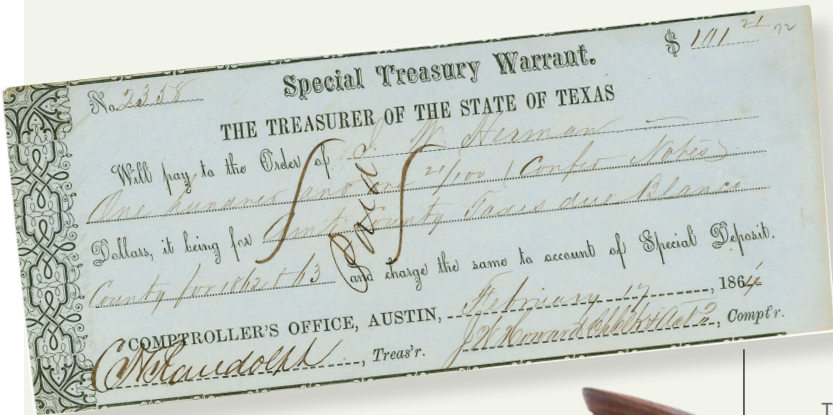 $ 101 21
72
No. 2358
Special Treasury Warrant.
THE TREASURER OF THE STATE OF TEXAS
Will pay to the Order of J. W. Herman
One hundred and one 21/100 (Confed Notes)
Dollars, it being for County Taxes due Blanco
County for 1862 & 63 and charge the same to account of Special Deposit.
Paid
COMPTROLLER'S OFFICE, AUSTIN, February 17, 1864
C H Randolph, Treas'r. Howard, Compt'r.
T